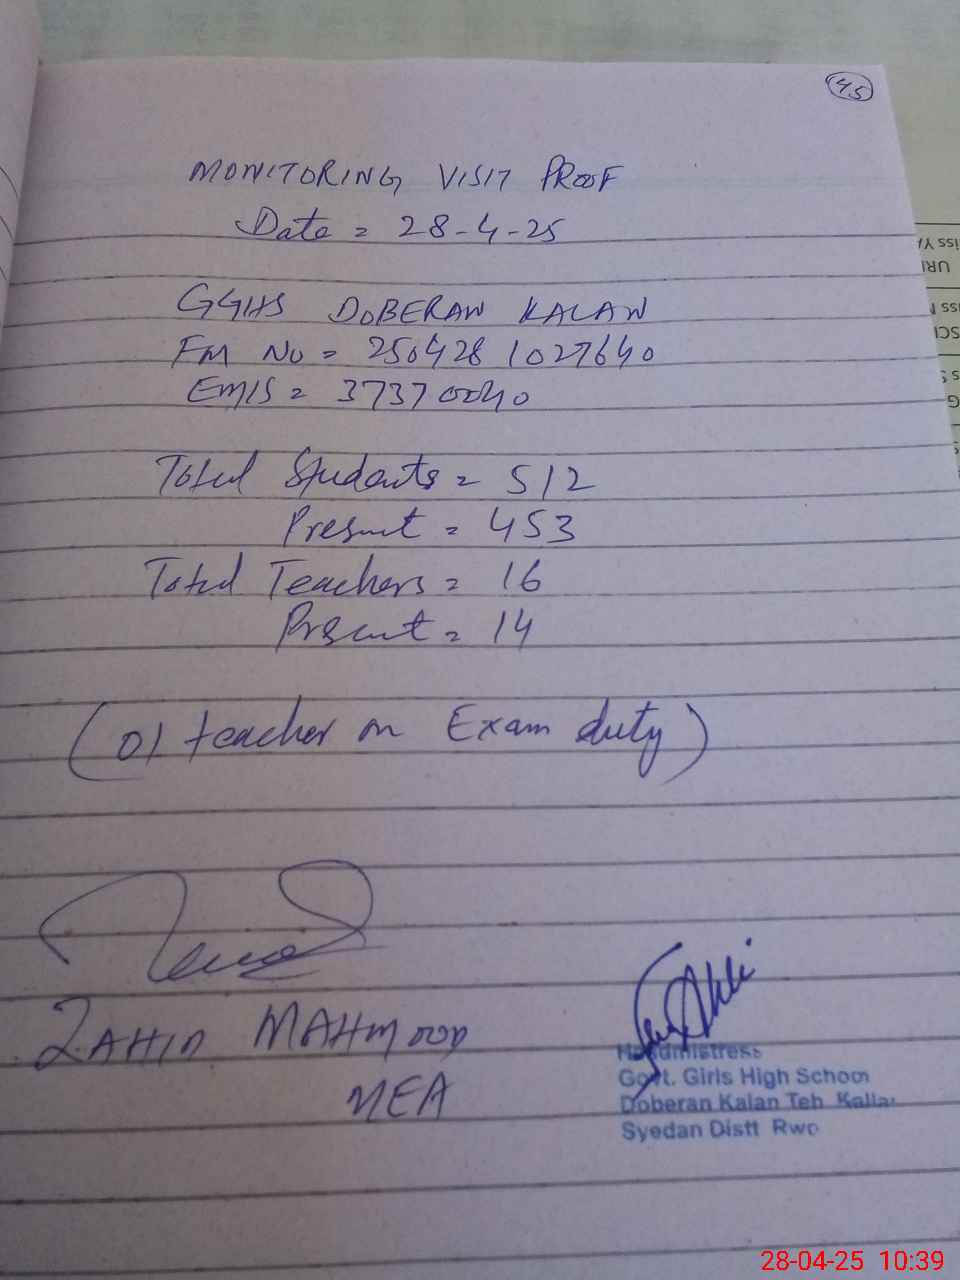 45
MONITORING VISIT PROOF
Date = 28-4-25
GGHS DOBERAN KALAN
FM No = 250428 1027640
EMIS = 37370040
Total Students = 512
Present = 453
Total Teachers = 16
Present = 14
(01 teacher on Exam duty)
ZAHID MAHMOOD
MEA
Headmistress
Govt. Girls High School
Doberan Kalan Teh Kallar
Syedan Distt Rwp
28-04-25 10:39